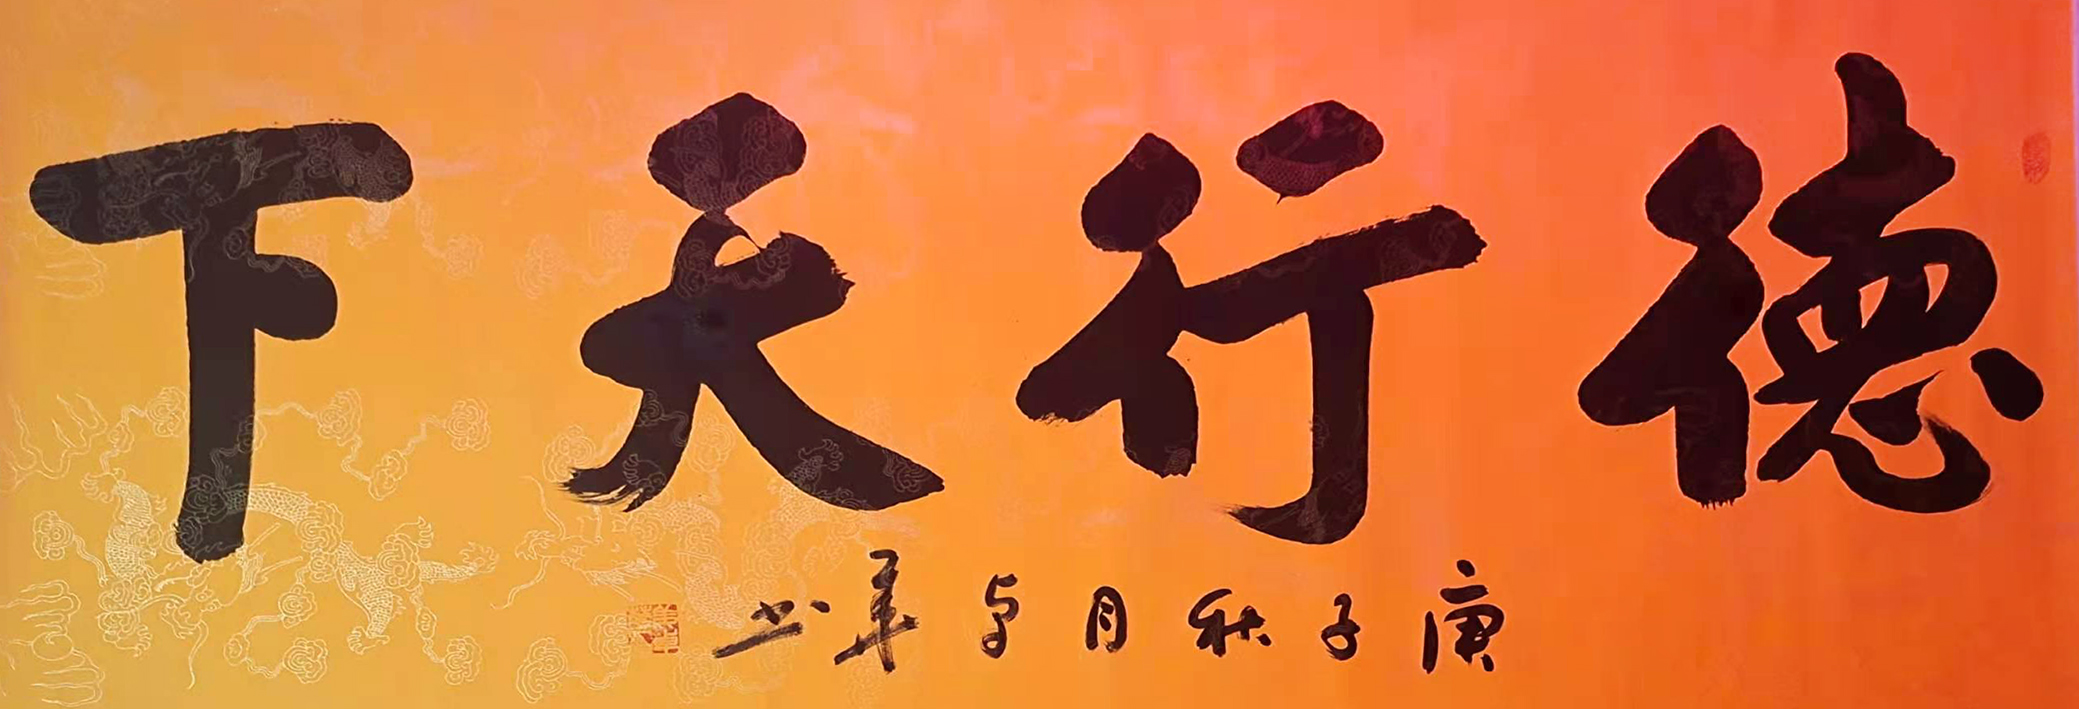 德行天下
庚子秋月